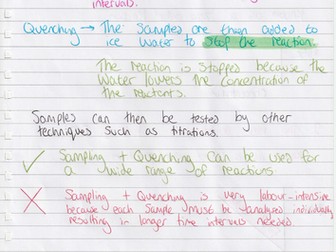 intervals.
Quenching → The samples are then added to
ice water to stop the reaction.
The reaction is stopped because the
water lowers the concentration of
the reactants.
Samples can then be tested by other
techniques such as titrations.
✓ Sampling + Quenching can be used for
a wide range of reactions
✗ Sampling + Quenching is very labour-intensive
because each sample must be analysed individually
resulting in longer time intervals needed.